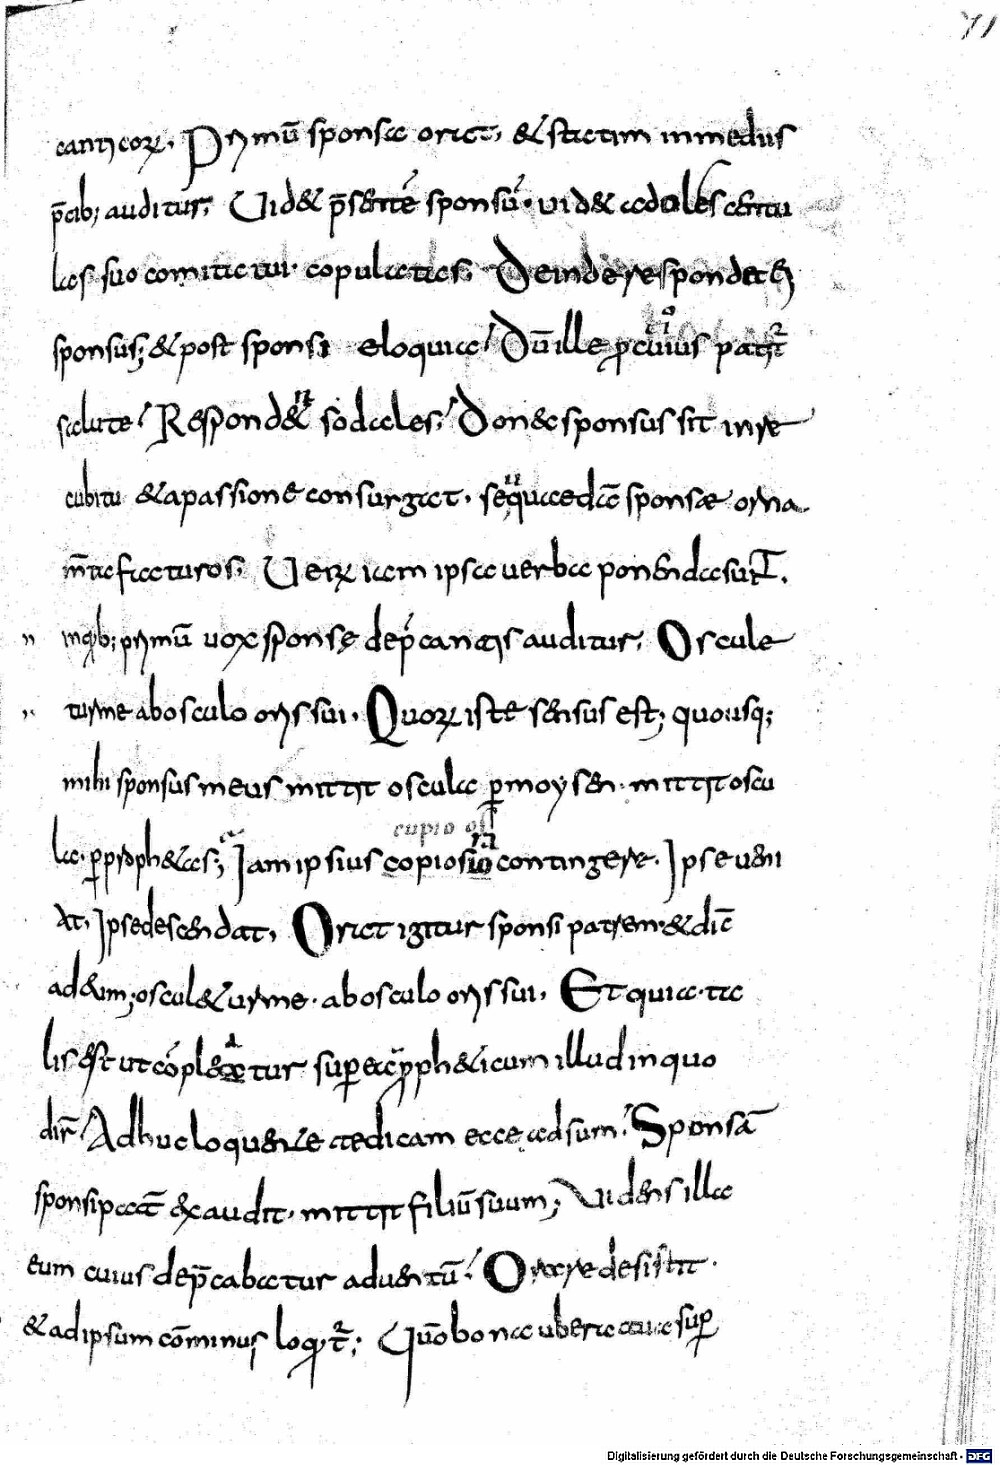 71
canticoꝝ. Primū sponsa orat, & statim in medus
p̄cib; auditur, Uid& p̄sentē sponsū. uid& adolescentu
las suo comitatui copulatas, Deinde respondet ei
sponsus; & post sponsi eloquia, Dū ille ꝓ cuius patit̉
salute, Responder̄ sodales, Donec sponsus sit in re
cubitu & a passione consurgat, se quaedā sponsæ orna
m̄ta facturos, Ueꝝ iam ipsa uerba ponenda sunt.
in qͥb; primū uox sponsę dep̄cantis auditur, Oscule
tur me ab osculo oris sui, Quoꝝ iste sensus est; quousq;
mihi sponsus meus mittit oscula ꝑ moysen. mittit oscu
cupio os
la. ꝑ ꝓph&as; Iam ipsius copiosiō contingere. Ipse ueni
at, Ipse descendat, Orat igitur sponsi patrem. & dic̄
ad eum; oscul&ur me. ab osculo oris sui, Et quia ta
lis est ut cōpleatur super ea ꝓph&icum illud in quo
dir̄, Adhuc loquente te dicam ecce adsum, Sponsā
sponsi pat̄ exaudit. mittit filiū suum; Uidens illa
eum cuius dep̄cabatur aduentū, Orare desistit.
& ad ipsum cōminus loqͥt̉; Quō bona ubera tua suꝑ
Digitalisierung gefördert durch die Deutsche Forschungsgemeinschaft - DFG